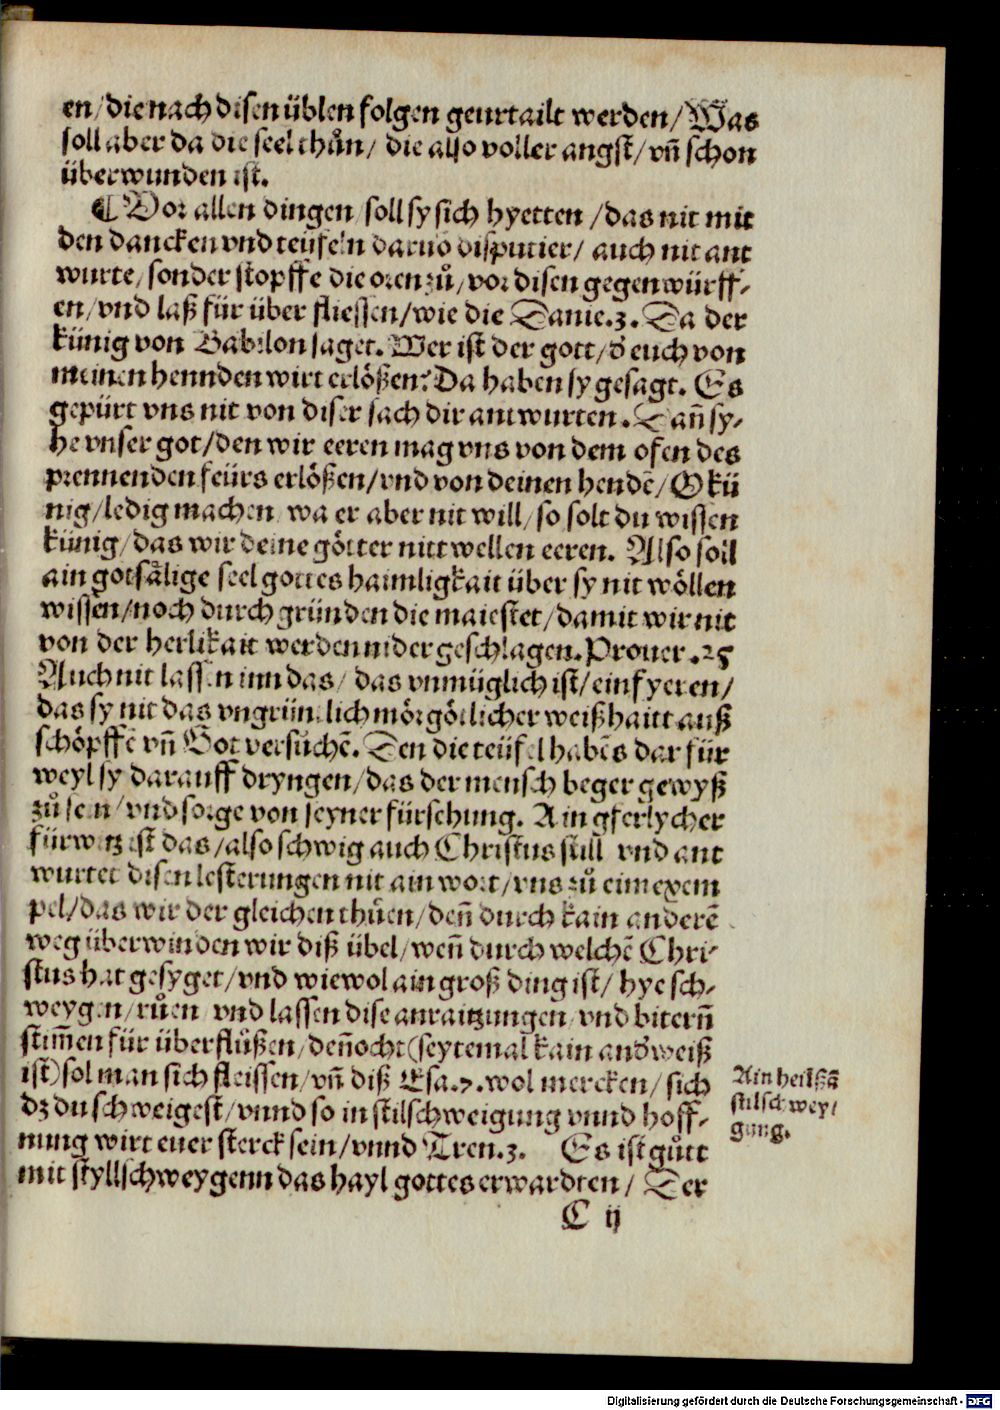 en/die nach disen üblen folgen geurtailt werden/Was
soll aber da die seel thůn/ die also voller angst/vñ schon
überwunden ist.
¶ Vor allen dingen soll sy sich hyetten /das nit mit
den dancken vnd teüfeln daruō disputier/ auch nit ant
wurte/sonder stopffe die oren zů/vor disen gegenwürff-
en/vnd laß für über fliessen/wie die Danie.3. Da der
künig von Babilon saget. Wer ist der gott/d̕ euch von
meinen hennden wirt erlößen? Da haben sy gesagt. Es
gepürt vns nit von diser sach dir antwurten. Dañ sy-
he vnser got/den wir eeren mag vns von dem ofen des
prennenden feürs erlößen/vnd von deinen hendē/O kü
nig/ledig machen wa er aber nit will/so solt du wissen
künig/das wir deine götter nitt wellen eeren. Also soll
ain gotsälige seel gottes haimligkait über sy nit wöllen
wissen/noch durch gründen die maiestet/damit wir nit
von der herlikait werden nider geschlagen. Prouer .25
Auch nit lassen inn das/ das vnmüglich ist/einfyeren/
das sy nit das vngrüntlich mör götlicher weißhaitt auß
schöpffē vñ Got versůchē. Den die teüfel habēs dar für
weyl sy darauff dryngen/das der mensch beger gewyß
zů sein/vnd sorge von seyner fürsehung. Ain gferlycher
fürwitz ist das/also schwig auch Christus still vnd ant
wurtet disen lesterungen nit ain wort/vns zů eim exem
pel/das wir der gleichen thůen/deñ durch kain anderē
weg überwinden wir diß übel/weñ durch welchē Chri-
stus hat gesyget/vnd wiewol ain groß ding ist/ hye sch-
weygen/růen vnd lassen dise anraitzungen vnd biterñ
stim̄en für überflůßen/deñocht (seytemal kain and̕weiß
ist) sol man sich fleissen/vñ diß Esa.7.wol mercken/sich
dz du schweigest/vnnd so in stilschweigung vnnd hoff-
nung wirt euer sterck sein/vnnd Tren.3. Es ist gůtt
mit styllschweygenn das hayl gottes erwardten/ Der
C ij
Ain heilßā
stilschwey/
gung.
Digitalisierung gefördert durch die Deutsche Forschungsgemeinschaft - DFG